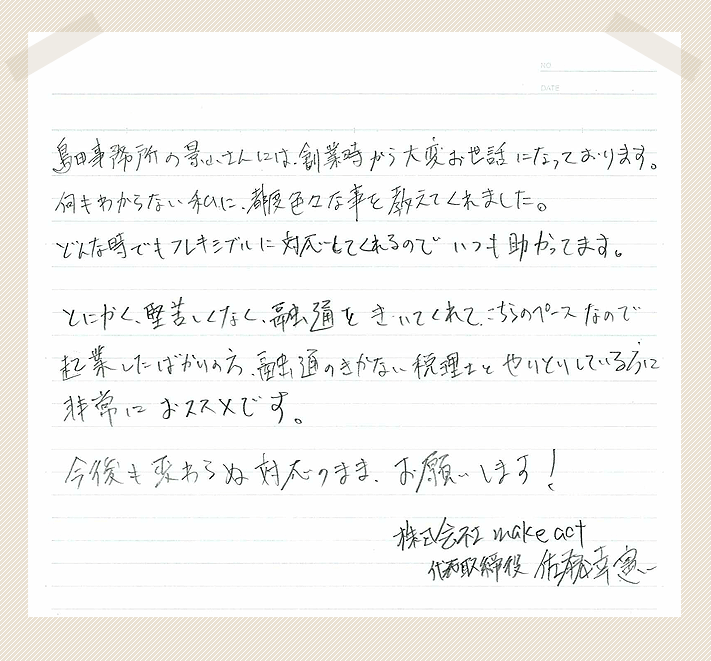 NO
DATE
島田事務所の景山さんには、創業時から大変お世話になっております。
何もわからない私に、都度色々な事を教えてくれました。
どんな時でもフレキシブルに対応してくれるのでいつも助かってます。
とにかく、堅苦しくなく、融通をきいてくれて、こちらのペースなので
起業したばかりの方、融通のきかない税理士とやりとりしている方に
非常におススメです。
今後も変わらぬ対応のまま、お願いします！
株式会社 make act
代表取締役 佐藤幸憲